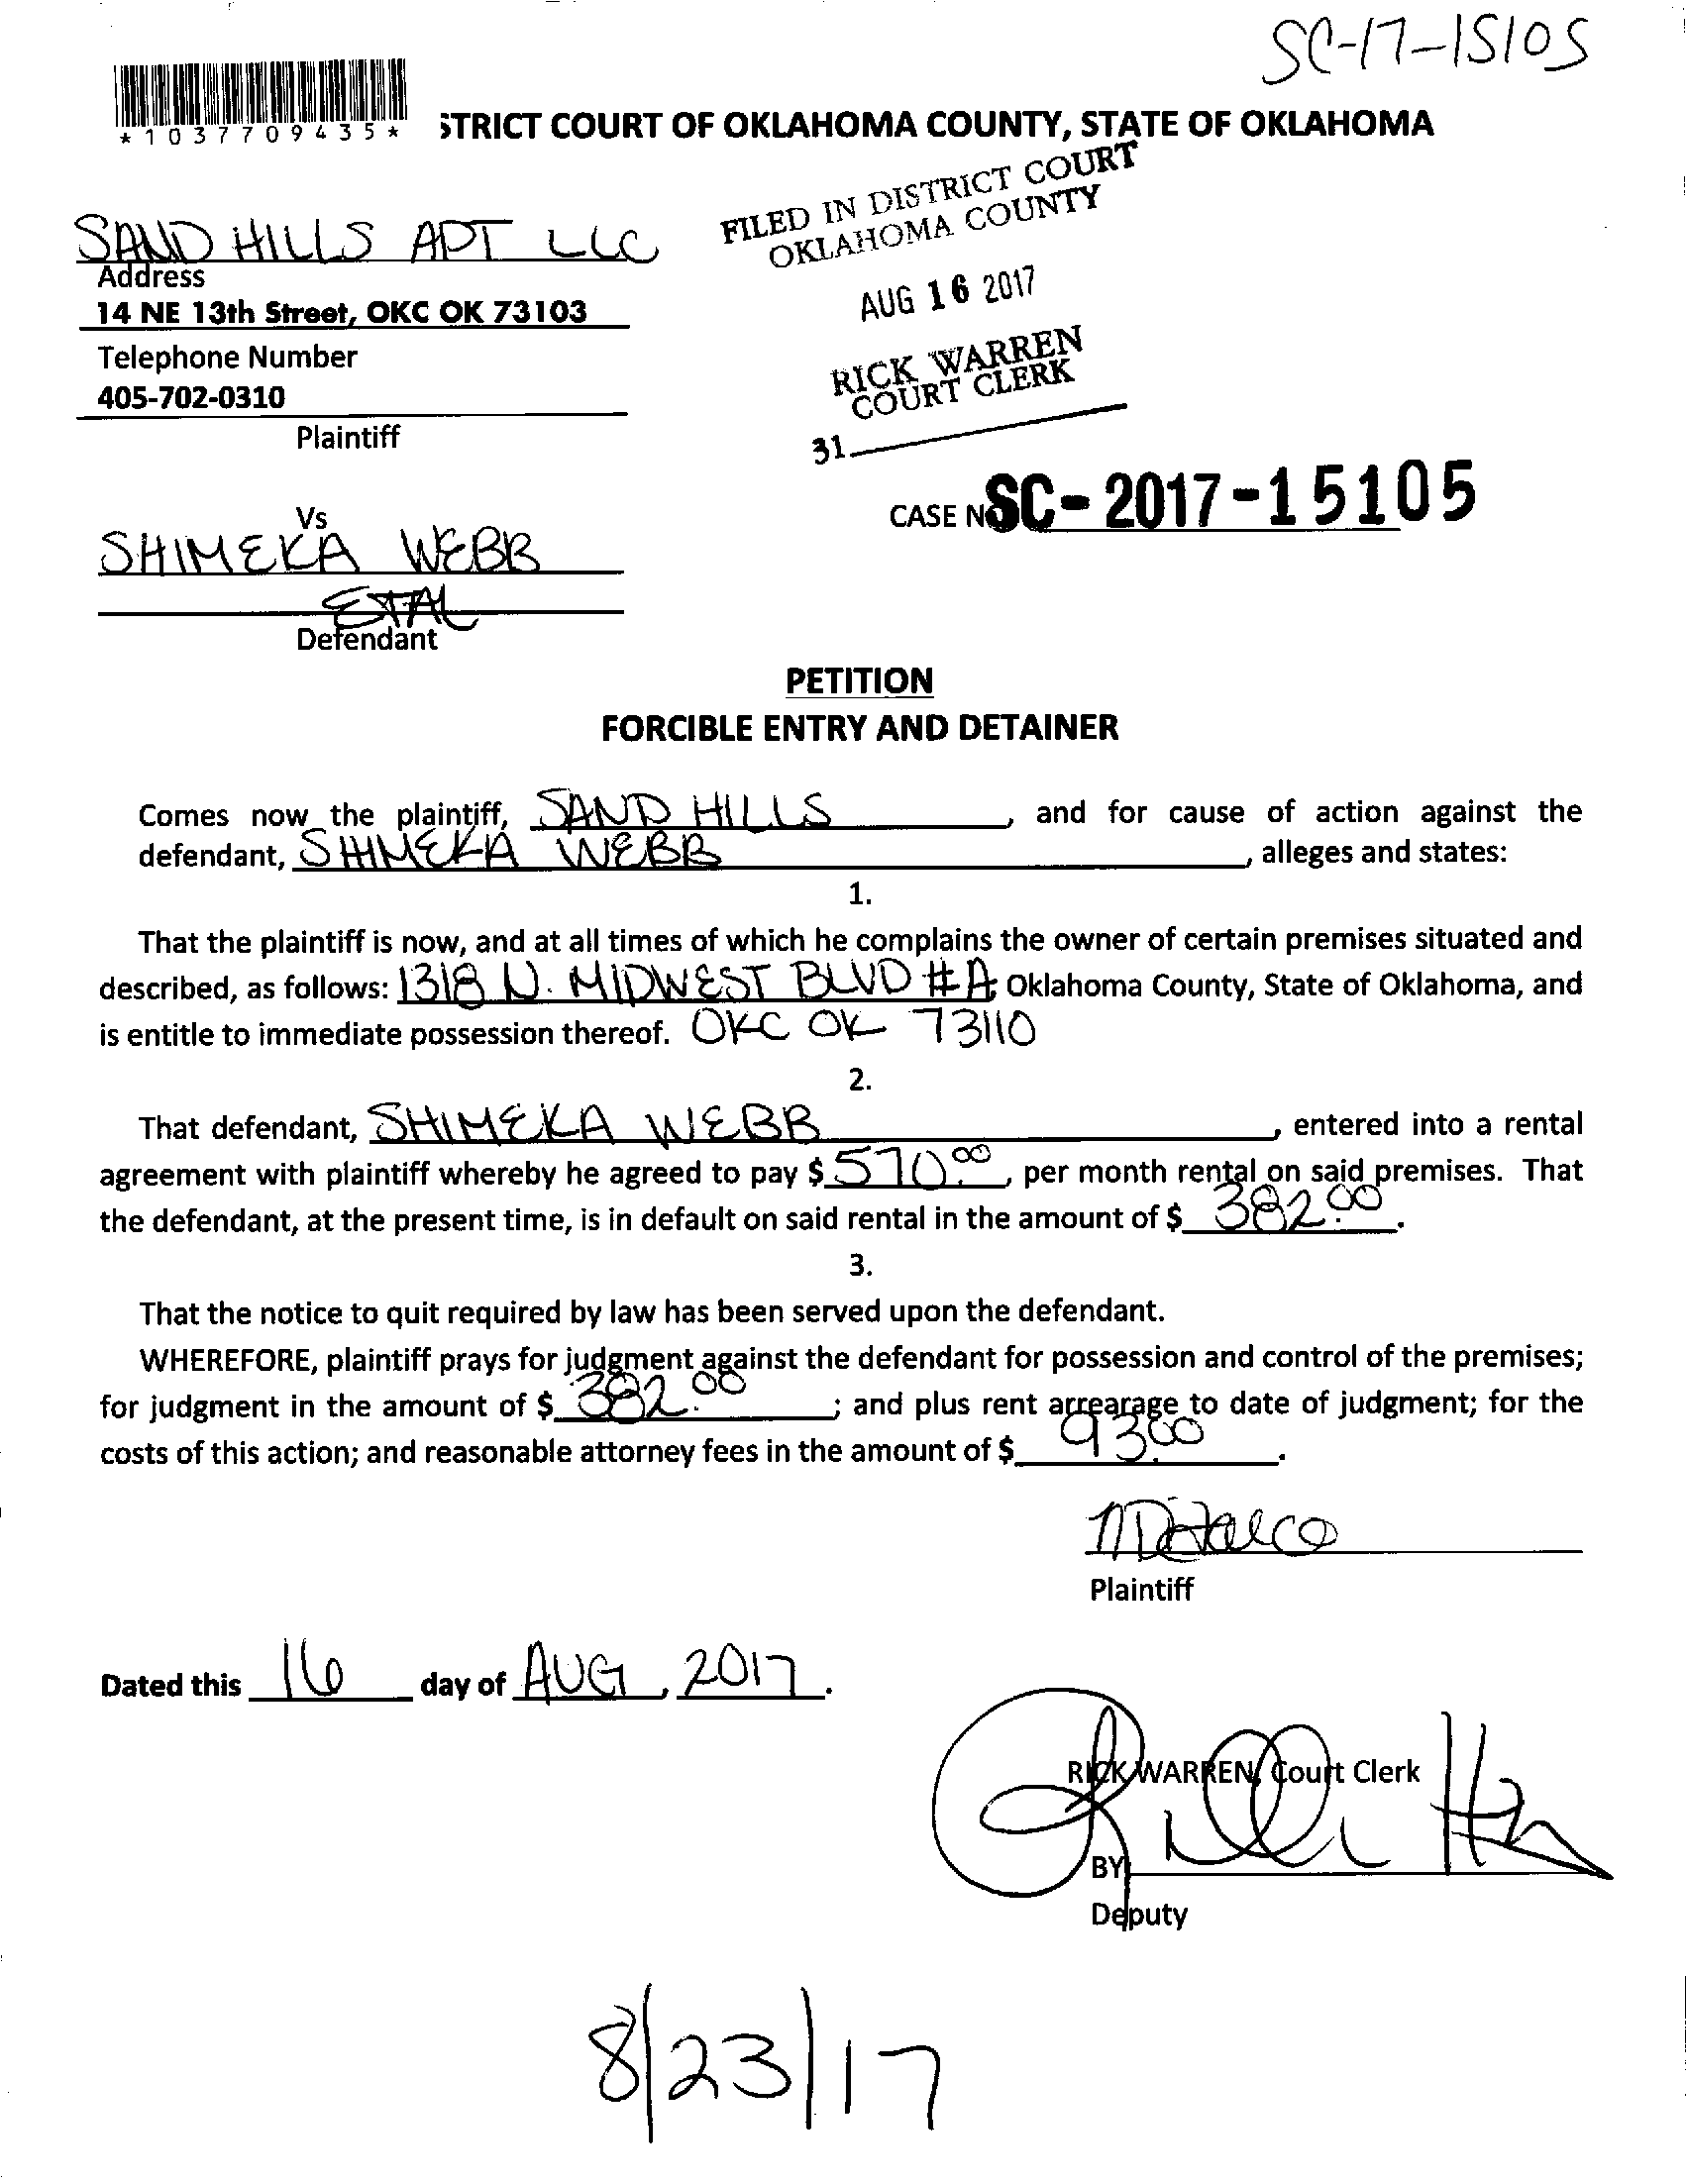 SC-17-15105
*1037709435*
STRICT COURT OF OKLAHOMA COUNTY, STATE OF OKLAHOMA
FILED IN DISTRICT COURT
OKLAHOMA COUNTY
SAND HILLS APT LLC
Address
14 NE 13th Street, OKC OK 73103
AUG 16 2017
Telephone Number
RICK WARREN
COURT CLERK
405-702-0310
Plaintiff
31
CASE NO SC-2017-15105
Vs
SHIMEKA WEBB
ETAL
Defendant
PETITION
FORCIBLE ENTRY AND DETAINER
Comes now the plaintiff, SAND HILLS, and for cause of action against the
defendant, SHIMEKA WEBB, alleges and states:
1.
That the plaintiff is now, and at all times of which he complains the owner of certain premises situated and
described, as follows: 1318 N. MIDWEST BLVD #A; Oklahoma County, State of Oklahoma, and
is entitle to immediate possession thereof. OKC OK 73110
2.
That defendant, SHIMEKA WEBB, entered into a rental
agreement with plaintiff whereby he agreed to pay $ 570.00, per month rental on said premises. That
the defendant, at the present time, is in default on said rental in the amount of $ 382.00.
3.
That the notice to quit required by law has been served upon the defendant.
WHEREFORE, plaintiff prays for judgment against the defendant for possession and control of the premises;
for judgment in the amount of $ 382.00; and plus rent arrearage to date of judgment; for the
costs of this action; and reasonable attorney fees in the amount of $ 93.00.
Plaintiff
Dated this 16 day of AUG, 2017.
RICK WARREN, Court Clerk
BY
Deputy
8/23/17